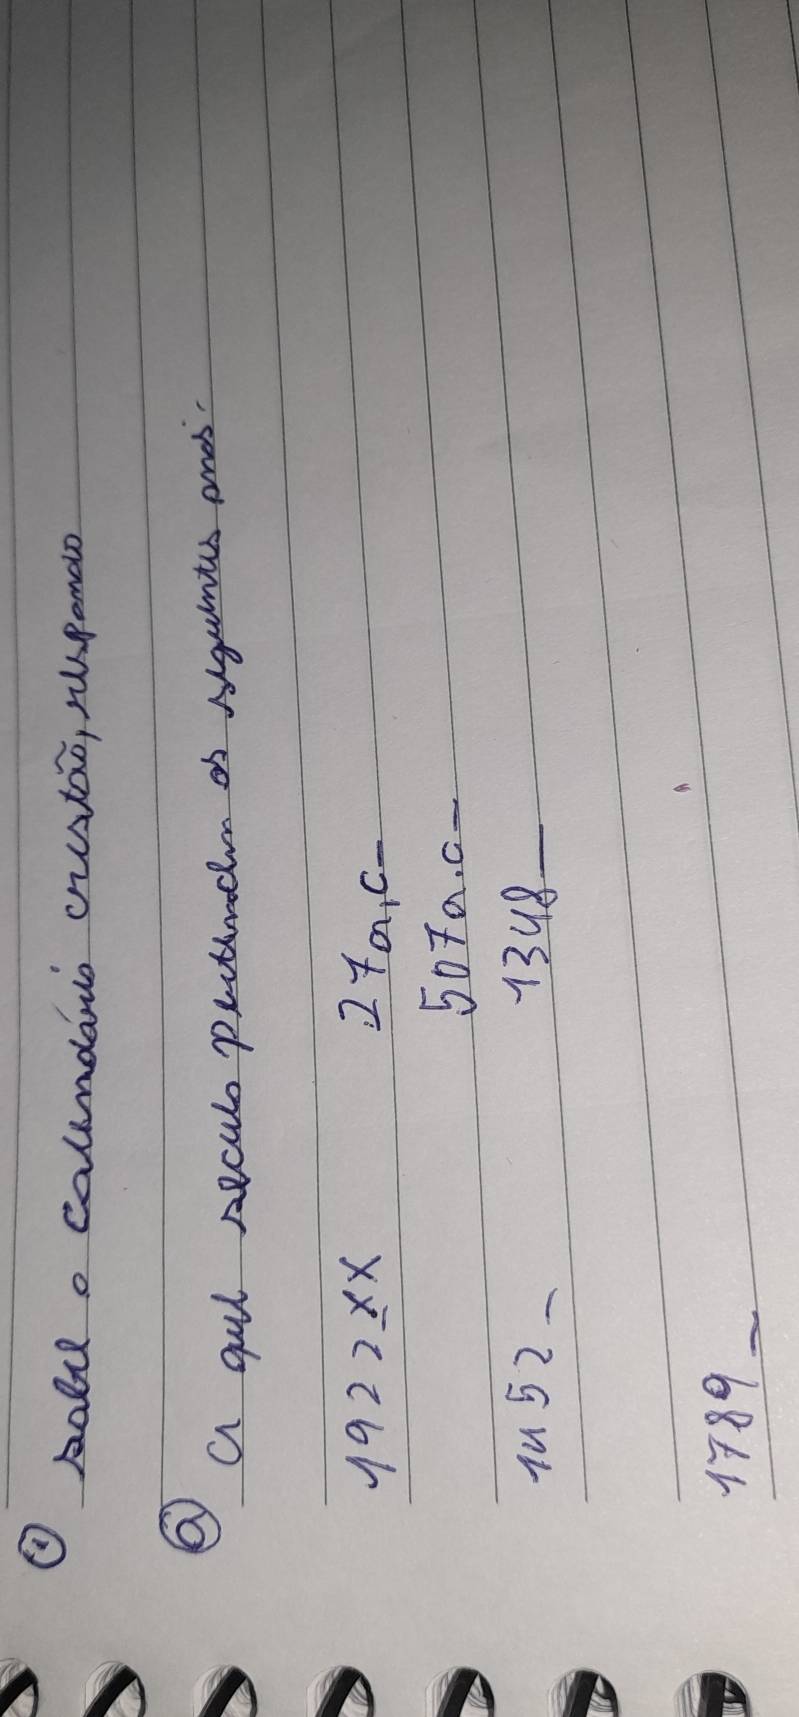 ① sobre o calendário cristão, responda
ⓐ A que século pertencem os seguintes anos.
1922 XX 27 a.C -
507 a.c -
1452 - 1348 -
1789 -